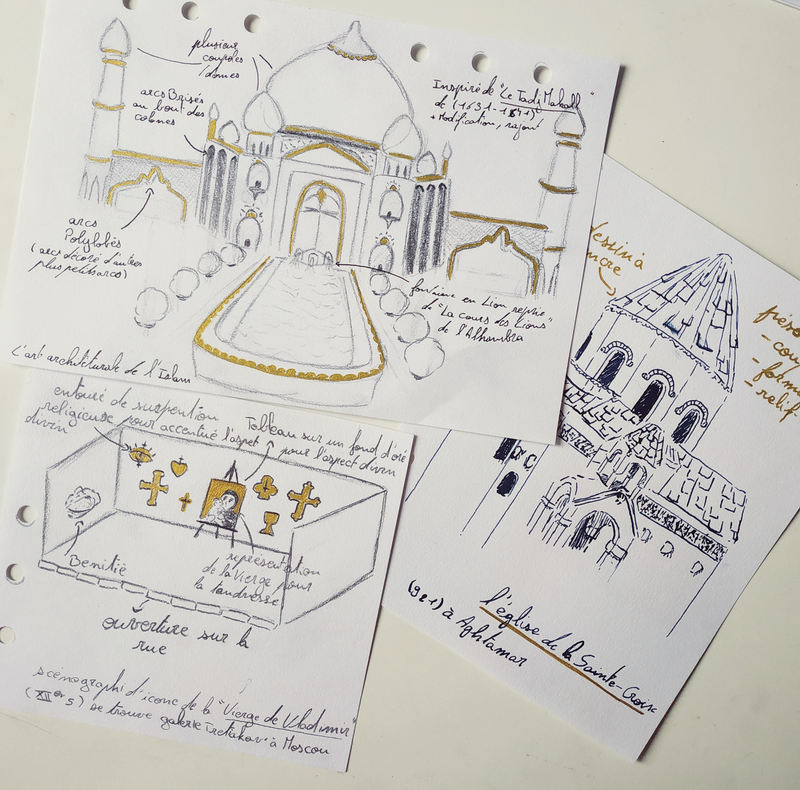 plusieurs
coupoles
/domes
arcs Brisés
au bout des
colones
Inspiré de "Le Tadj Mahall"
de (1631-1641)
+ Modification, rajout
arcs
Polylobés
(arcs décoré d'autres
plus petits arcs)
fontaine en Lion reprise
de "La cours des Lions"
de l'Alhambra
L'art architéturale de l'Islam
entouré de suspention
religieuse pour accentué l'aspet
divin
Tableau sur un fond d'oré
pour l'aspect divin
Benitié
représentation
de la Vierge pour
la tandresse
ouverture sur la
rue
scénographi d'icone de la "Vierge de Vladimir"
(XIIe s) se trouve galerie Tretakov à Moscou
dessin à
encre
- relif
l'église de la Sainte-Croix
(921) à Aghtamar